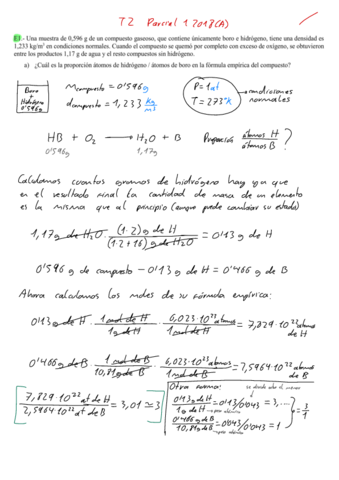 T2 Parcial 1 2018(A)
E1.- Una muestra de 0,596 g de un compuesto gaseoso, que contiene únicamente boro e hidrógeno, tiene una densidad es
1,233 kg/m³ en condiciones normales. Cuando el compuesto se quemó por completo con exceso de oxígeno, se obtuvieron
entre los productos 1,17 g de agua y el resto compuestos sin hidrógeno.
a) ¿Cuál es la proporción átomos de hidrógeno / átomos de boro en la fórmula empírica del compuesto?
Boro + Hidrógeno 0'596g
M compuesto = 0'596g
d compuesto = 1,233 kg/m³
P = 1 at
T = 273°K
condiciones normales
HB + O₂ → H₂O + B
0'596g 1,17g
Proporción átomos H / átomos B ?
Calculamos cuantos gramos de hidrógeno hay ya que
en el resultado final la cantidad de masa de un elemento
es la misma que al principio (aunque puede cambiar su estado)
1,17 g de H₂O · (1·2) g de H / (1·2+16) g de H₂O = 0'13 g de H
0'596 g de compuesto − 0'13 g de H = 0'466 g de B
Ahora calculamos los moles de su fórmula empírica:
0'13 g de H · 1 mol de H / 1 g de H · 6,023·10²³ átomos / 1 mol de H = 7,829·10²² átomos de H
0'466 g de B · 1 mol de B / 10,81 g de B · 6,023·10²³ átomos / 1 mol de B = 2,5964·10²² átomos de B
7,829·10²² at de H / 2,5964·10²² at de B = 3,01 ≃ 3
Otra forma: se divide entre el menor
0'13 g de H / 1 g de H = 0'13/0'043 = 3,...
0'466 g de B / 10,81 g de B = 0'043/0'043 = 1
= 3/1